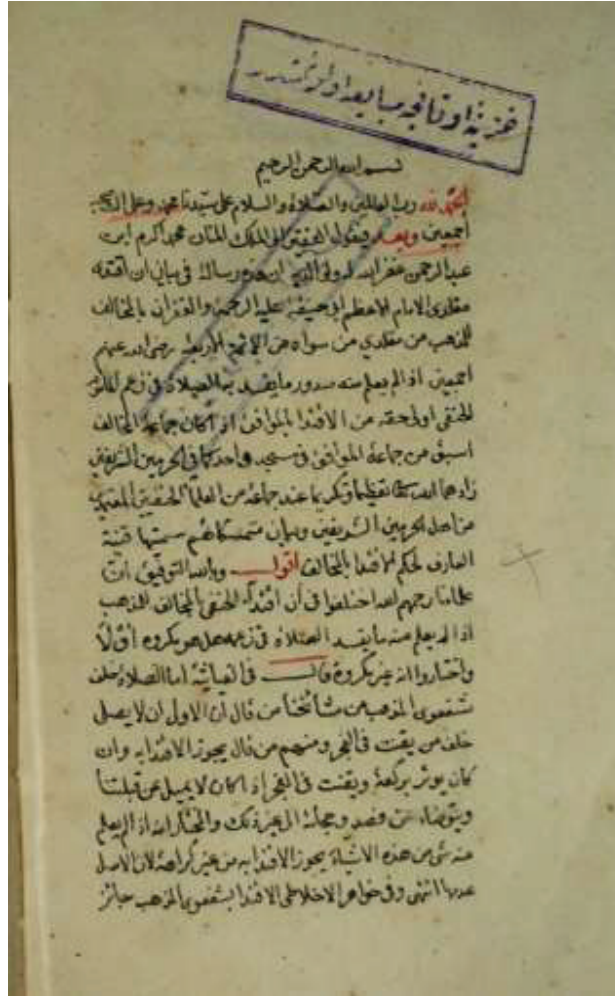 بسم الله الرحمن الرحيم
الحمد لله رب العالمين والصلاة والسلام على سيدنا محمد وعلى آله وصحبه
أجمعين وبعد فيقول الفقير الى الملك المنان محمد أكرم ابن
عبد الرحمن غفر الله له ولوالديه ان هذه رسالة في بيان ان اقتداء
مقلدى الامام الاعظم ابو حنيفة عليه الرحمة والغفران بالمخالف
للمذهب من مقلدي من سواه من الائمة الاربعة رضى الله عنهم
اجمعين اذا لم يعلم منه صدور ما يفسد به الصلاة في زعم
الحنفى اولى حقه من الاقتدا بالموافق اذا كان جماعة المخالف
اسبق من جماعة الموافق في مسجد واحد كما في الحرمين الشريفين
زادهما الله تعظيما وتكريما عند جماعة من العلما الحنفيين
من اهل الحرمين الشريفين وبيان متمسكاتهم سميتها
العارف لحكم الاقتدا بالمخالف اقول وبالله التوفيق ان
علمائنا رحمهم الله اختلفوا في أن اقتداء الحنفى بالمخالف للمذهب
اذا لم يعلم منه ما يفسد الصلاة في زعمه هل هو مكروه أو لا
واختاروا انه غير مكروه قال في الغياثية اما الصلاة خلف
شفعوى المذهب من مشائخنا من قال ان الاولى ان لا يصلى
خلف من يقنت في الفجر ومنهم من قال يجوز الاقتدا به وان
كان يوتر بركعة ويقنت في الفجر اذا كان لا يميل عن قبلتنا
ويتوضاء عن فصد وحجامة الى غير ذلك والمختار انه اذا لم يعلم
منه شئ من هذه الاشياء يجوز الاقتدا به من غير كراهة لان الاصل
عدمها انتهى وفي جواهر الاخلاطى الاقتدا بشفعوى المذهب جائز